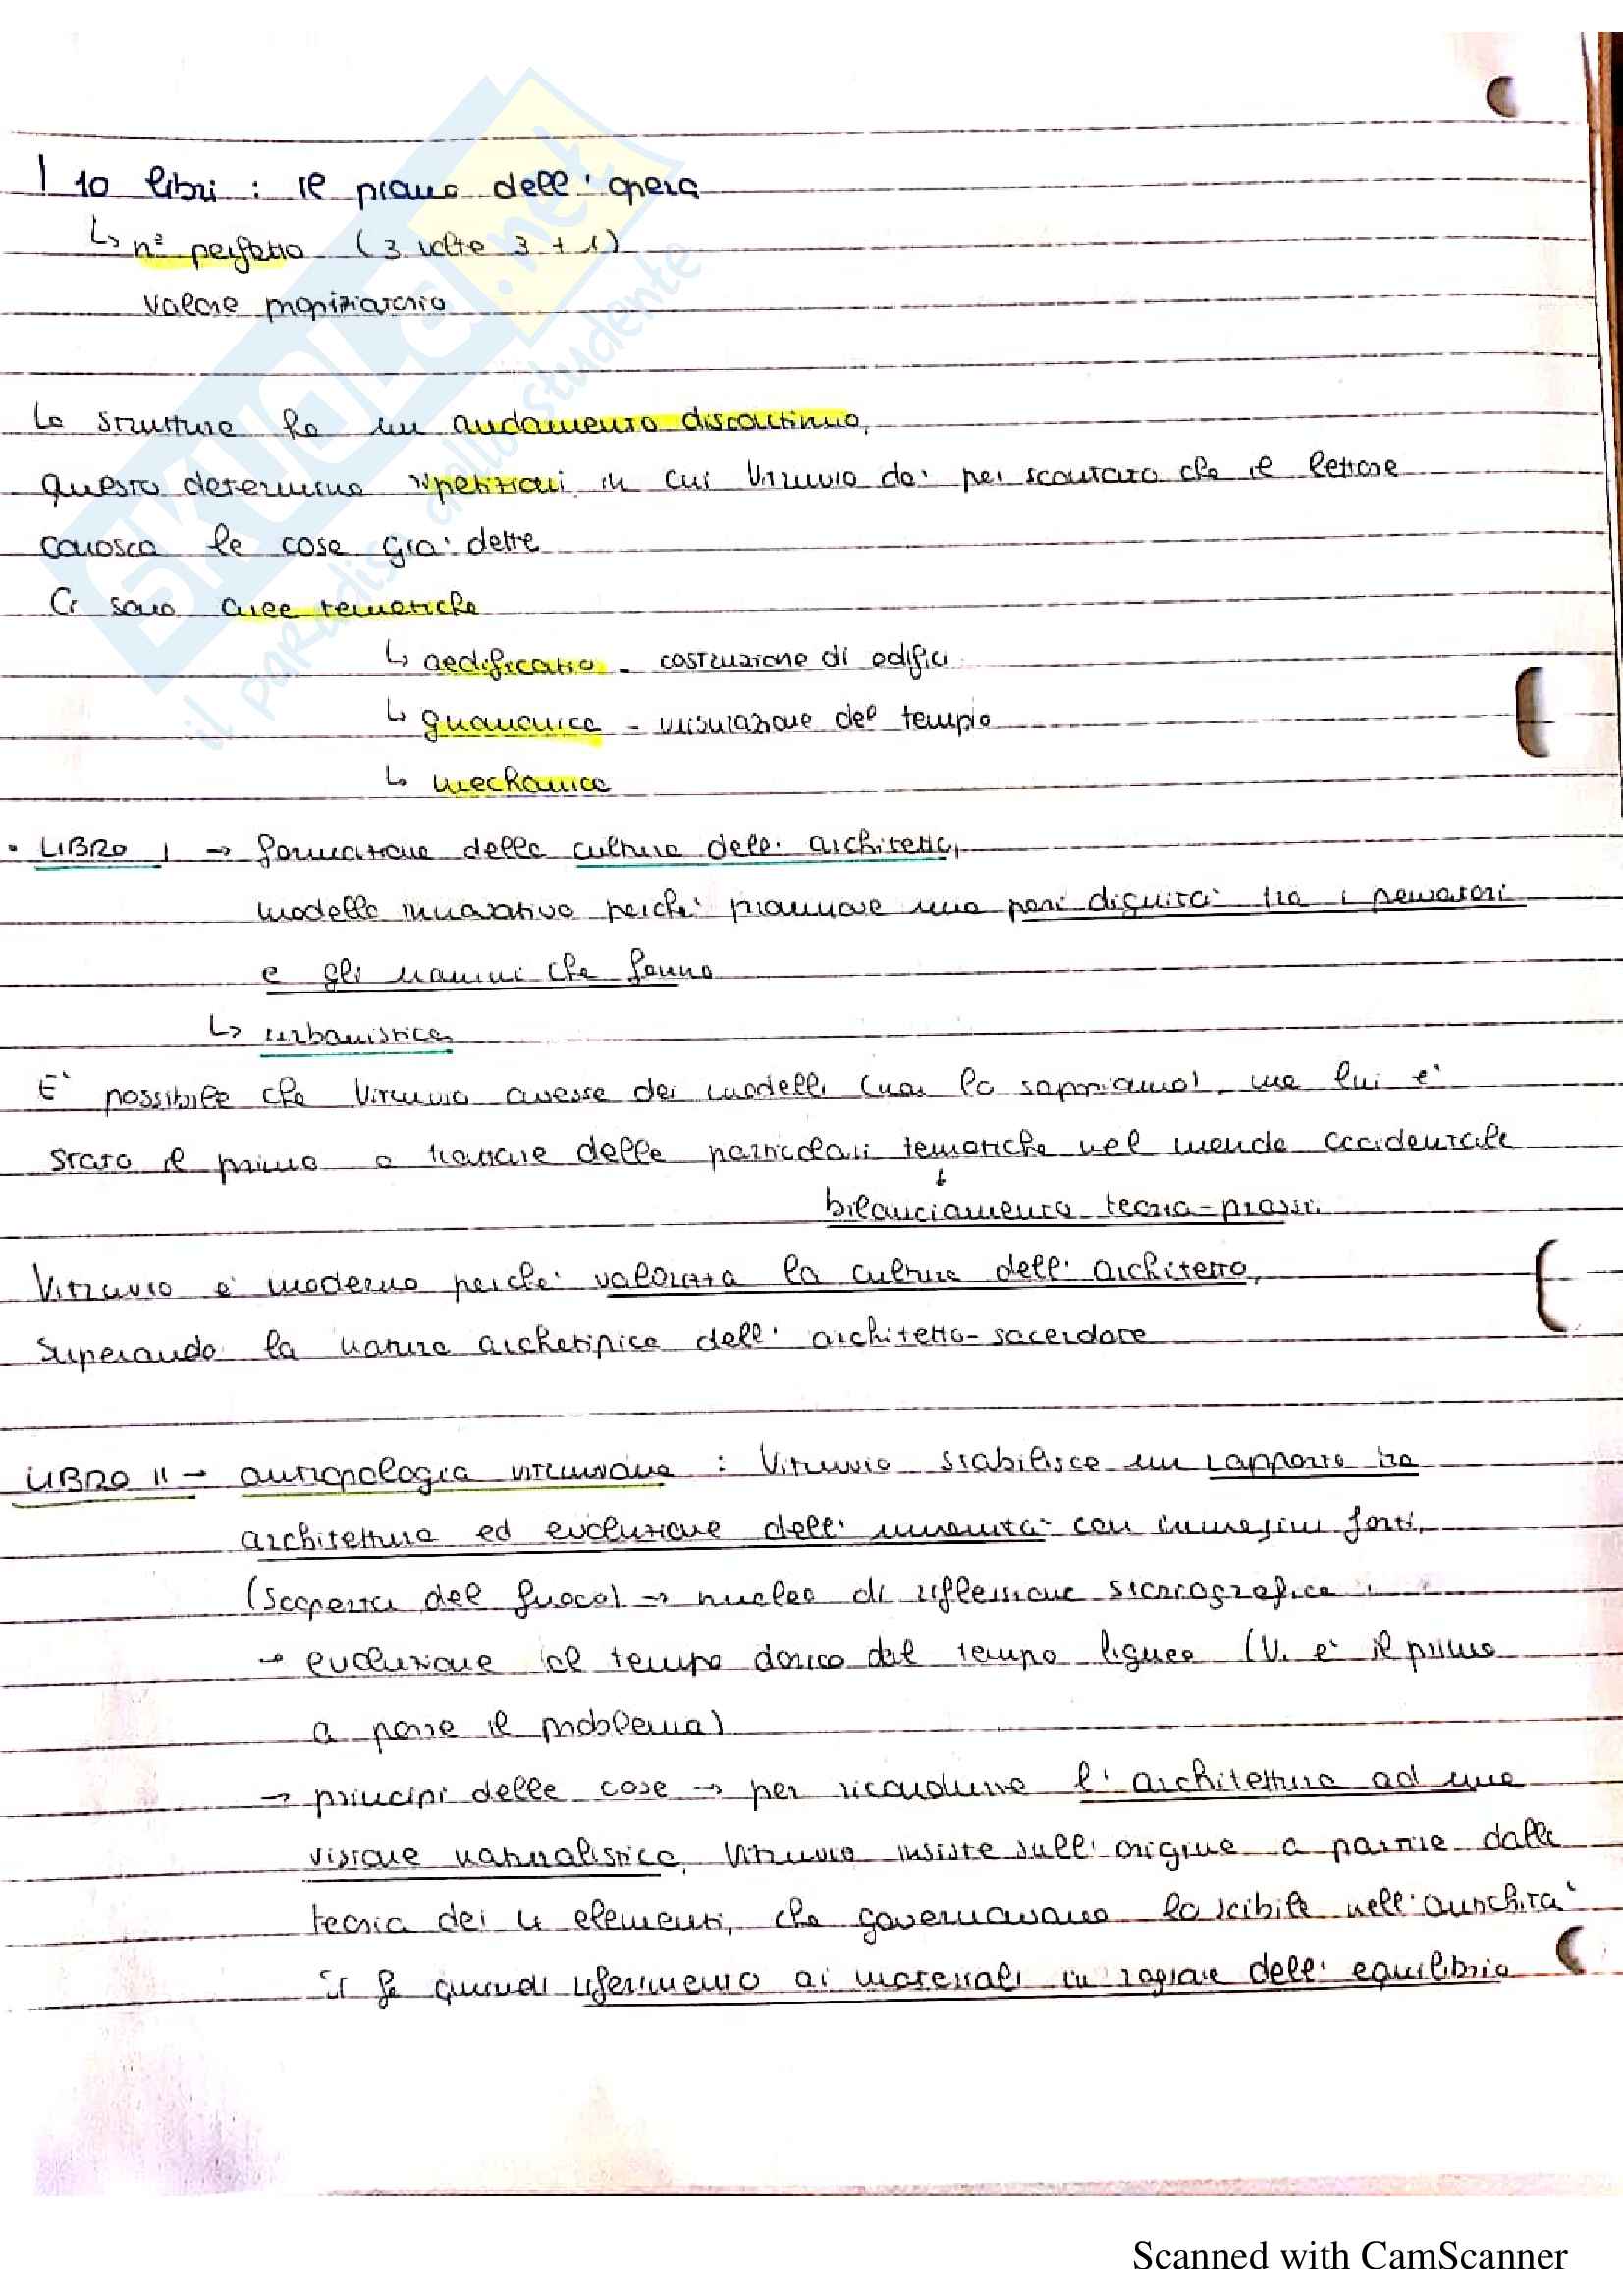 I 10 libri : il piano dell'opera
↳ n° perfetto (3 volte 3 + 1)
valore propiziatorio
La struttura ha un andamento discontinuo,
questo determina ripetizioni in cui Vitruvio da' per scontato che il lettore
conosca le cose gia' dette
Ci sono aree tematiche
↳ aedificatio - costruzione di edifici
↳ gnomonica - misurazione del tempio
↳ mechanica
• LIBRO I → formazione della cultura dell'architetto,
modello innovativo perche' promuove una pari dignita' tra i pensatori
e gli uomini che fanno
↳ urbanistica
E' possibile che Vitruvio avesse dei modelli (non lo sappiamo), ma lui e'
stato il primo a trattare delle particolari tematiche nel mondo occidentale
↓
bilanciamento teoria-prassi
Vitruvio e' moderno perche' valorizza la cultura dell'architetto,
superando la natura archetipica dell'architetto-sacerdote
LIBRO II - antropologia vitruviana : Vitruvio stabilisce un rapporto tra
architettura ed evoluzione dell'umanita' con immagini forti,
(scoperta del fuoco) → nucleo di riflessione storiografica :
→ evoluzione al tempo dorico dal tempo ligneo (V. e' il primo
a porre il problema)
→ principi delle cose → per ricondurre l'architettura ad una
visione naturalistica, Vitruvio insiste sull'origine a partire dalla
teoria dei 4 elementi, che governavano lo scibile nell'antichita'
si fa quindi riferimento ai materiali in ragione dell'equilibrio
SKUOLA.net
il paradiso dello studente
Scanned with CamScanner